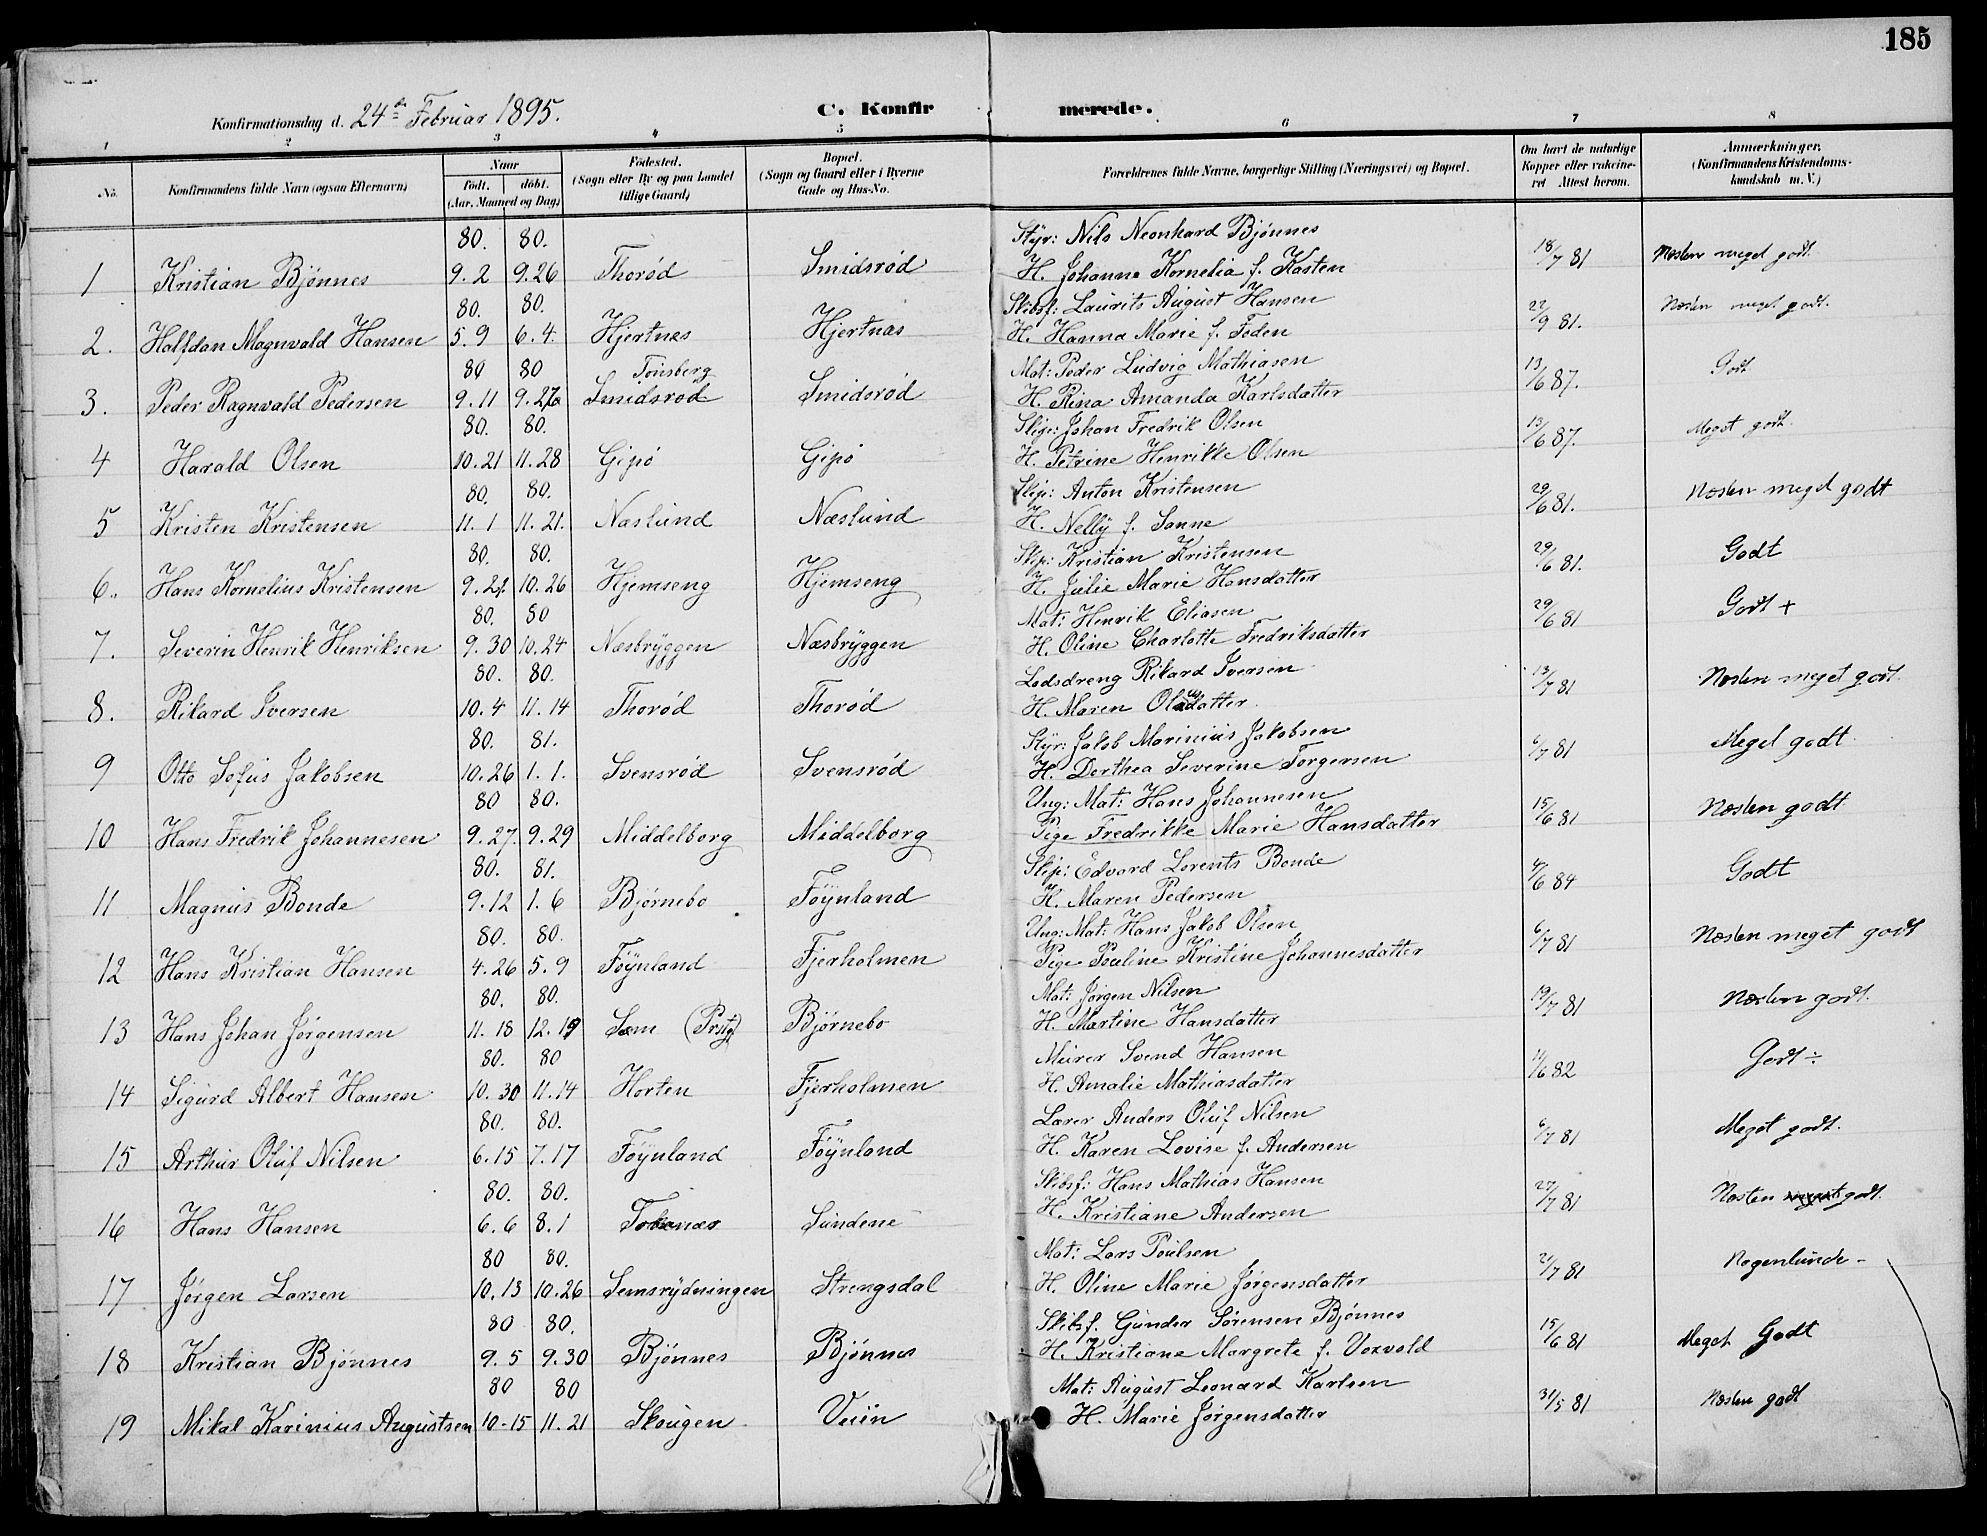 185
Konfirmationsdag d. 24de Februar 1895. C. Konfirmerede.
1 2 3 4 5 6 7 8
No. Konfirmandens fulde Navn (ogsaa Efternavn) Naar født. døbt. (Aar. Maaned og Dag) Fødested. (Sogn eller By og paa Landet tillige Gaard) Bopæl. (Sogn og Gaard eller i Byerne Gade og Hus-No. Forældrenes fulde Navne, borgerlige Stilling (Næringsvei) og Bopæl. Om havt de naturlige Kopper eller vakcineret Attest herom. Anmærkninger. (Konfirmandens Kristendomskundskab m. V.)
80. 80. Styr: Nils Neonhard Bjønnes
1 Kristian Bjønnes 9.2 9.26 Thorød Smidsrød H. Johanne Kornelia f. Kasten 18/7 81 Næsten meget godt.
80. 80. Skibsf: Laurits August Hansen
2. Halfdan Magnvald Hansen 5.9 6.4. Hjertnes Hjertnæs H. Hanna Marie f. Foden 22/9 81. Næsten meget godt.
80 80 Tønsberg Mat: Peder Ludvig Mathiasen
3. Peder Ragnvald Pedersen 9.11 Smidsrød Smidsrød H. Rina Amanda Karlsdatter 13/6 87. Godt
80. 80. Skip: Johan Fredrik Olsen
4 Harald Olsen 10.21 11.28 Gipø Gipø H. Petrine Henrikke Olsen 13/6 87. Meget godt.
80. 80. Skip: Anton Kristensen
5 Kristen Kristensen 11.1 11.21. Næslund Næslund H. Nelly f. Sanne 29/6 81. Næsten meget godt
80. 80. Skip: Kristian Kristensen
6. Hans Kornelius Kristensen 10.26 Hjemseng Hjemseng H. Julie Marie Hansdatter 29/6 81. Godt
80. 80 Mat: Henrik Eliasen
7. Severin Henrik Henriksen 9.30 10.24 Næsbryggen Næsbryggen H. Oline Charlotte Fredriksdatter 29/6 81 Godt +
80. 80. Lodsdreng Rikard Iversen
8. Rikard Iversen 10.4 11.14 Thorød Thorød H. Maren 13/7 81 Næsten meget godt.
80. 81. Styr: Jakob Marinius Jakobsen
9 Otto Sofus Jakobsen 10.26 1.1. Svensrød Svensrød H. Dorthea Severine Torgersen 6/7 81 Meget godt.
80 80. Ung: Mat: Hans Johannesen
10 Hans Fredrik Johannesen 9.27. 9.29 Middelborg Middelborg Pige Fredrikke Marie Hansdatter 15/6 81 Næsten godt
80. 81. Skip: Edvard Lorents Bonde
11 Magnus Bonde 9.12 1.6 Bjørnebo Føynland H. Maren Pedersen 4/6 84 Godt
80. 80. Ung: Mat: Hans Jakob Olsen
12 Hans Kristian Hansen 4.26 5.9 Føynland Fjerholmen Pige Pauline Kristine Johannesdatter 6/7 81 Næsten meget godt
80. 80. Mat: Jørgen Nilsen
13 Hans Johan Jørgensen 11.18 12.19 Sæm (Prstg) Bjørnebo H. Martine Hansdatter 19/7 81 Næsten godt.
80. 80 Murer Svend Hansen
14 Sigurd Albert Hansen 10.30 11.14 Horten Fjerholmen H. Amalie Mathiasdatter 82 Godt ÷
80. 80. Lærer Anders Oluf Nilsen
15 Arthur Oluf Nilsen 6.15 7.17 Føynland Føynland H. Karen Lovise f. Andersen 6/7 81 Meget godt.
80. 80. Skibsf: Hans Mathias Hansen
16 Hans Hansen 6.6 8.1 Sundene H. Kristiane Andersen 27/7 81 Næsten meget godt.
80 80. Mat: Lars Poulsen
17 Jørgen Larsen 10.13 10.26 Semsrydningen Strengsdal H. Oline Marie Jørgensdatter 21/7 81 Nogenlunde -
80 80. Skibsf. Gunder Sørensen Bjønnes
18 Kristian Bjønnes 9.5 9.30 Bjønnes Bjønnes H. Kristiane Margrete f. Voxvold 15/6 81 Meget Godt
80 80 Mat: August Leonard Karlsen
19 Mikal Karinius Augustsen 10-15 11.21 Skougen H. Marie Jørgensdatter 31/5 81 Næsten godt